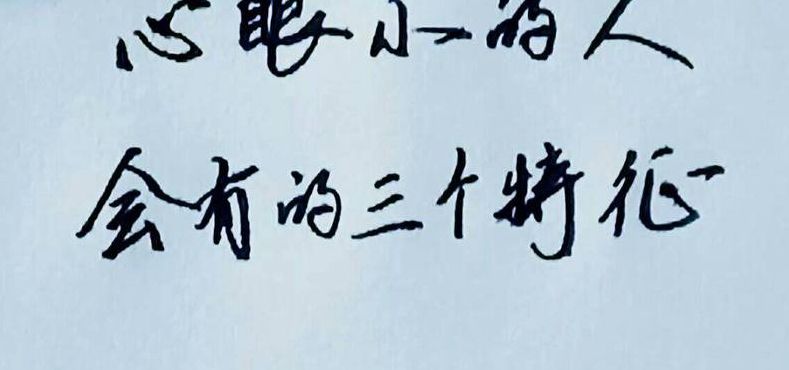 心眼小的人
会有的三个特征